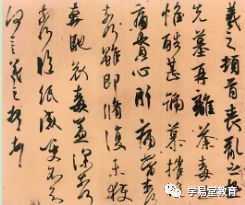 羲之頓首喪亂之極
先墓再離荼毒追
惟酷甚號慕摧絕
痛貫心肝痛當奈何
奈何雖即脩復未獲
奔馳哀毒益深奈何
奈何臨紙感哽不知
何言羲之頓首
学易堂教育